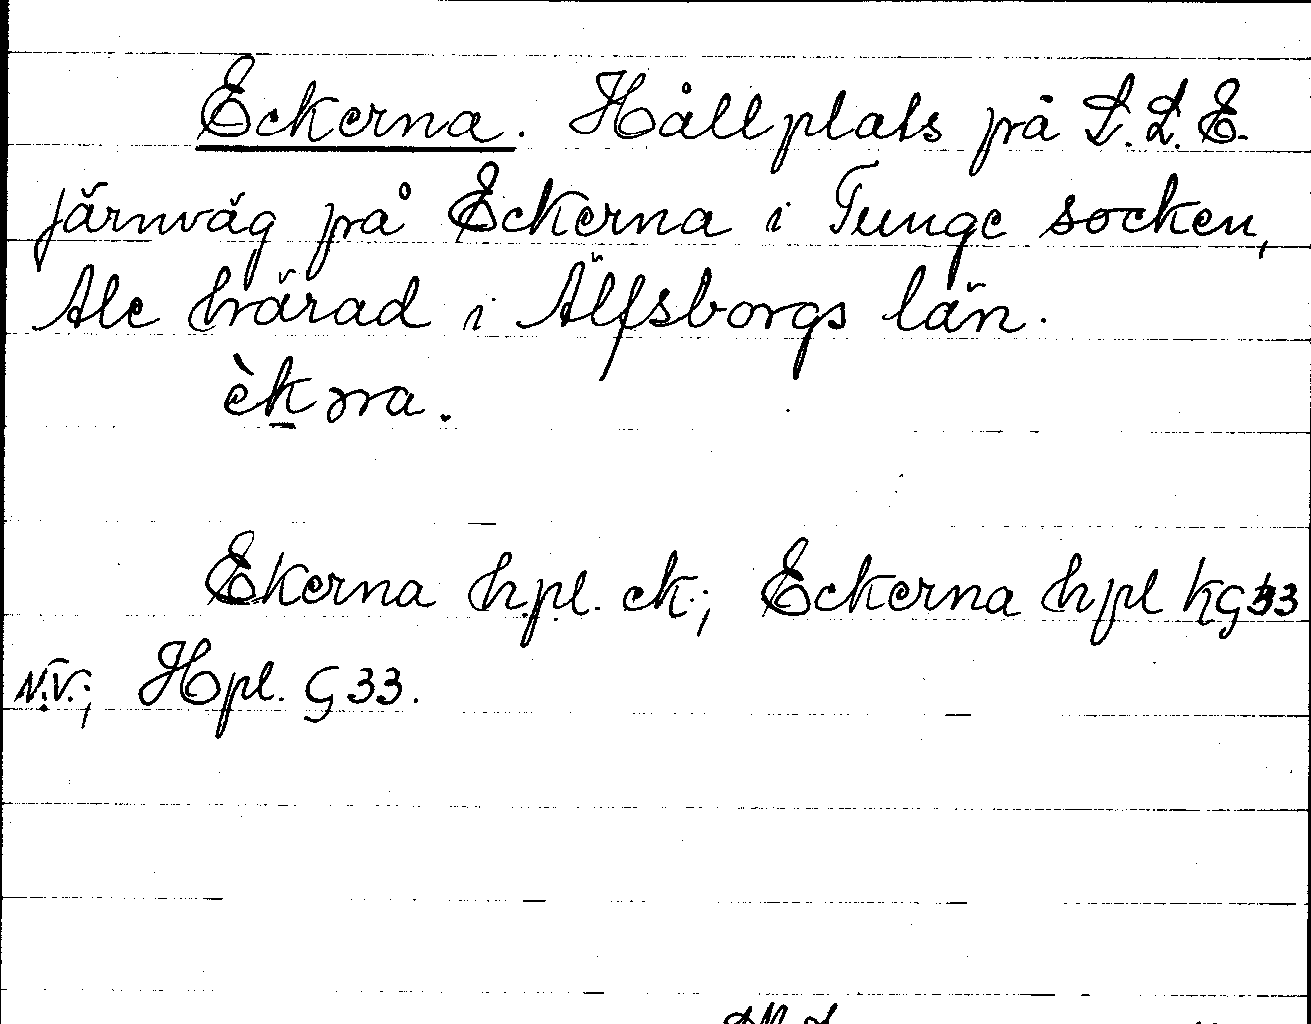 Eckerna. Hållplats på L.L.E.
järnväg på Eckerna i Tunge socken,
Ale härad i Älfsborgs län.
Ekerna hpl. ek; Eckerna hpl kG33
N.V.; Hpl. G33.